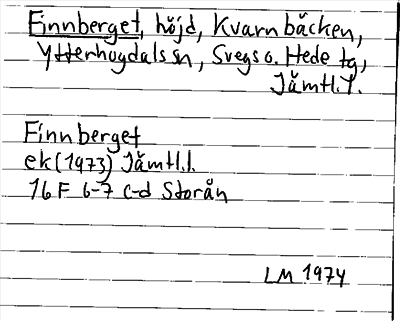 Finnberget, höjd, Kvarnbäcken,
Ytterhogdals sn, Svegs o. Hede tg,
Jämtl. l.
Finnberget
ek (1973) Jämtl. l.
16 F 6-7 c-d Storån
LM 1974